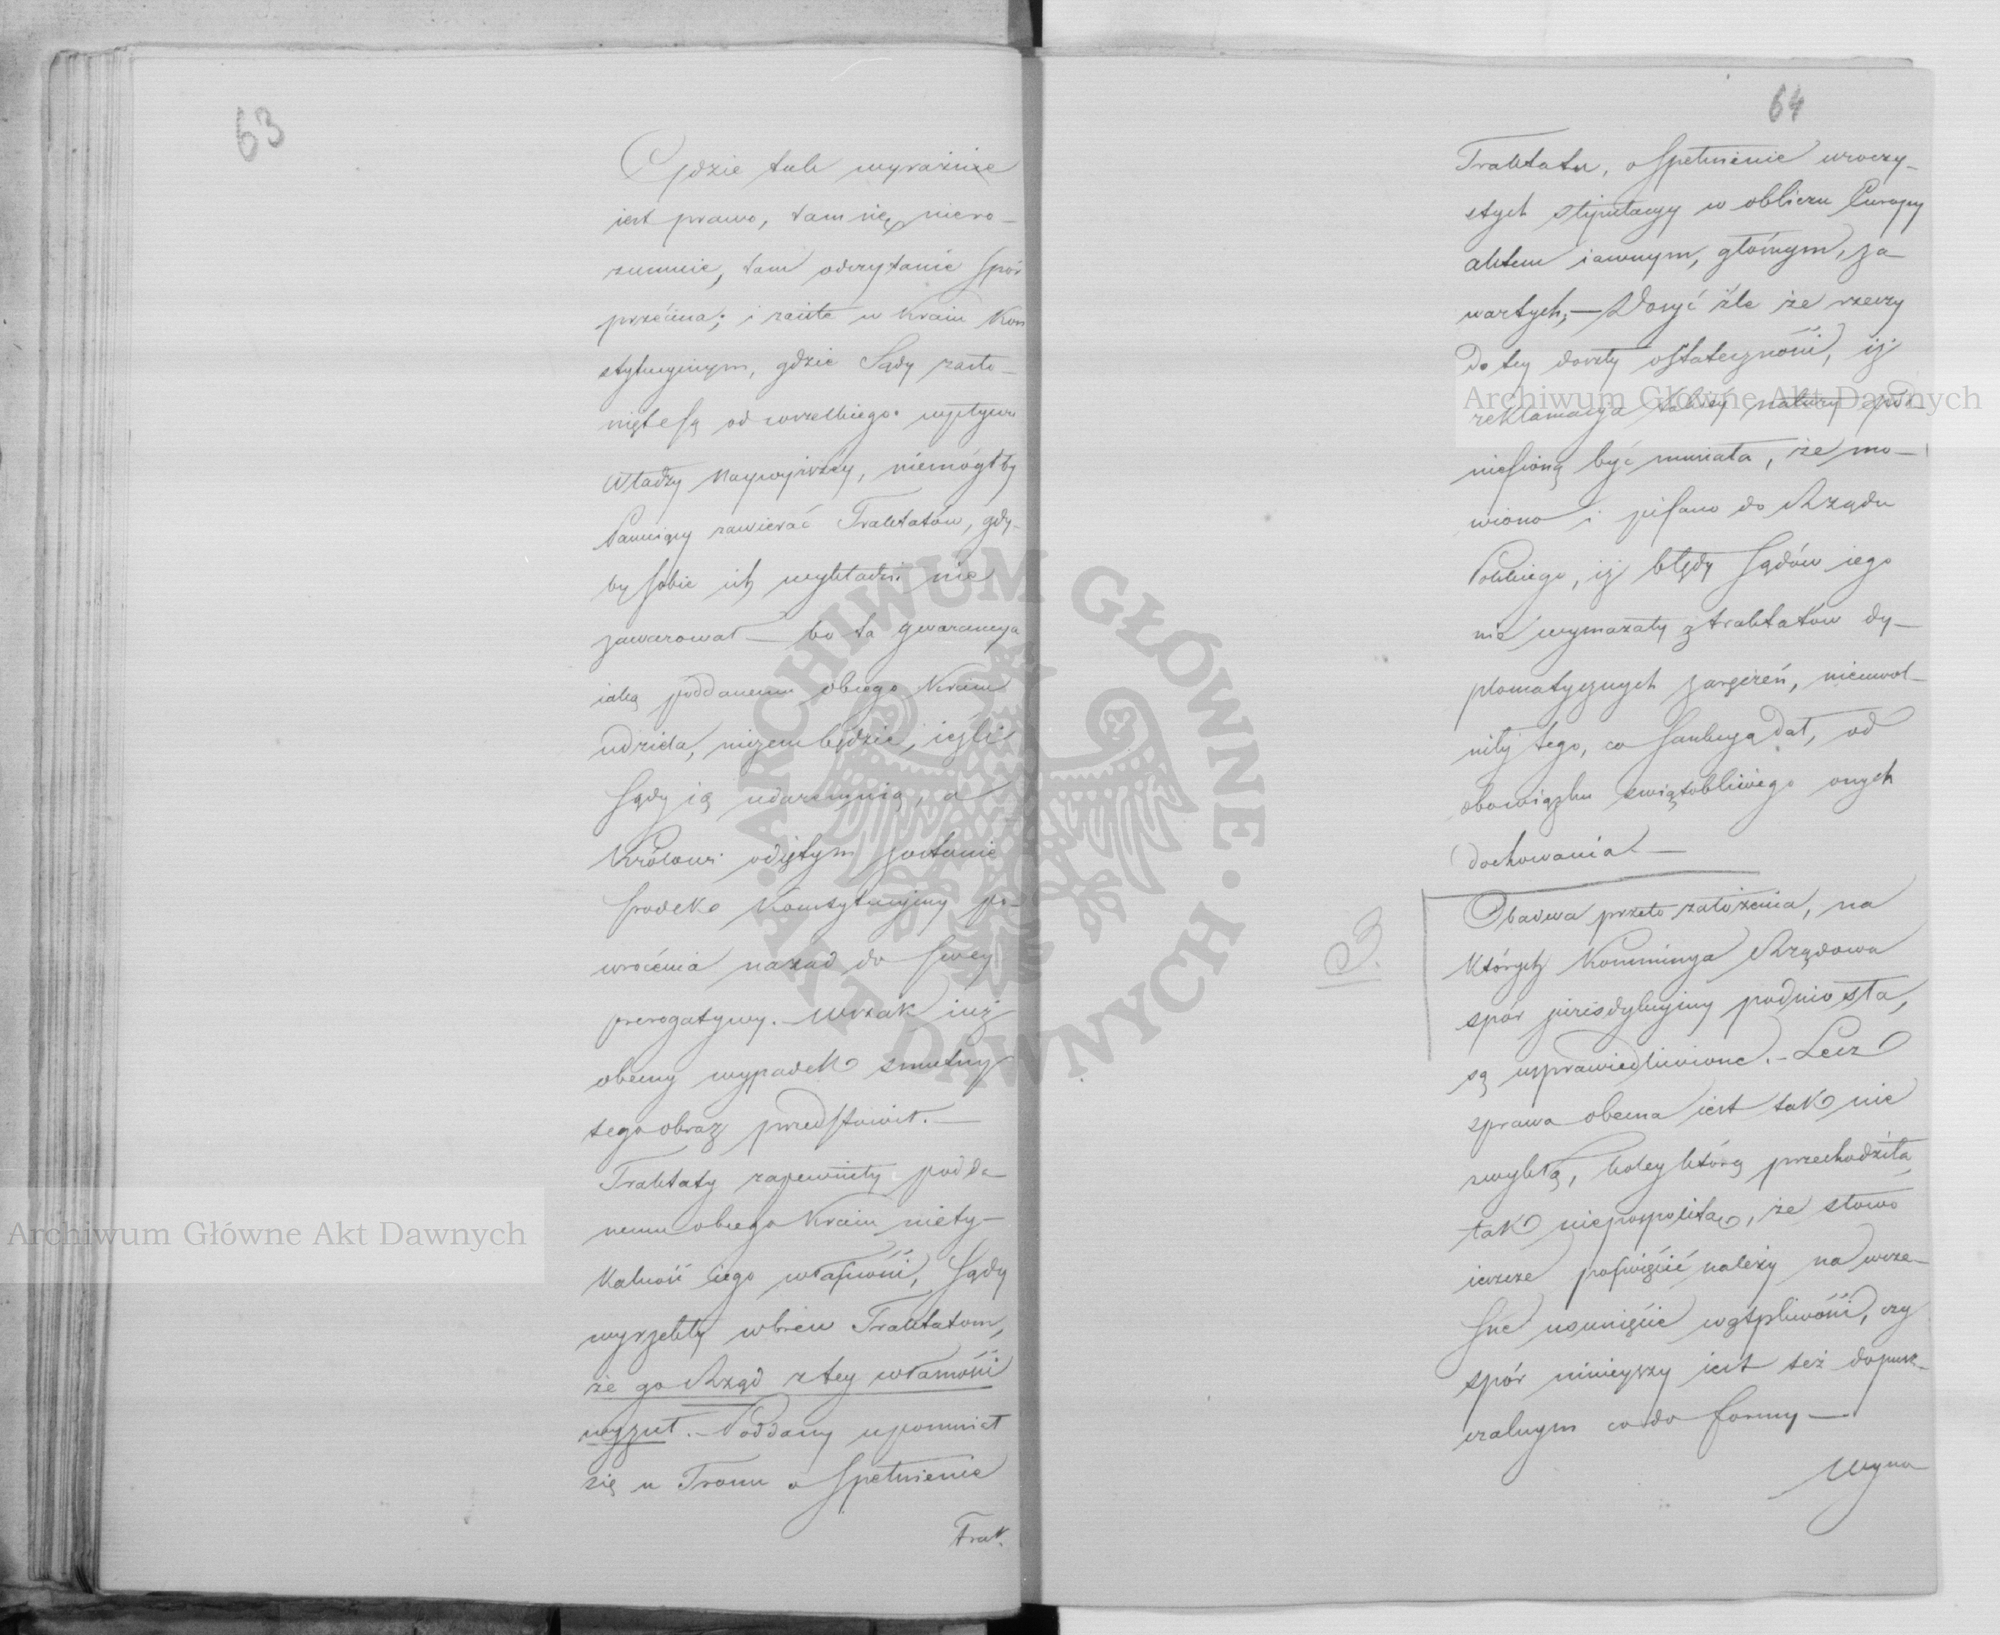 63
Gdzie tak wyraźnie
iest prawo, tam się niero-
zumuie, tam odczytanie spór
przecina; i zaiste w Kraiu Kon
stytucyinym, gdzie Sądy zasło-
nięte są od wszelkiego wpływu
Władzy Naywyższey, niemógłby
Panuiący zawierać Traktatów, gdy-
by sobie ich wykładu nie
zawarował — bo ta gwarancya
iaką poddanemu obcego Kraiu
udziela, niczem będzie, ieżli
Sądy ią udaremnią, a
Królowi odiętym zostanie
środek Konstytucyiny po-
wrócenia nazad do swey
prerogatywy. — Wszak iuż
obecny wypadek smutny
tego obraz przedstawił. —
Traktaty zapewniły podda-
nemu obcego Kraiu niety-
kalność iego własności, Sądy
wyrzekły wbrew Traktatom,
że go Rząd z tey własności
wyzuł. — Poddany upomniał
się u Tronu o spełnienie
Trak.
64
Traktatu, o spełnienie uroczy-
stych stypulacyy w obliczu Europy
aktem iawnym, głośnym, za-
wartych; — Dosyć źle że rzeczy
do tey doszły ostateczności, iż
reklamacya takiey natury pod-
niesioną być musiała, że mó-
wiono i pisano do Rządu
Polskiego, iż błędy Sądów iego
nie wymazały z traktatów dy-
plomatycznych zaręczeń, nieuwol-
niły tego, co sankcyą dał, od
obowiązku swiątobliwego onych
dochowania —
3.
Obadwa przeto założenia, na
których Kommissya Rządowa
spór jurisdykcyiny podniosła,
są usprawiedliwione. — Lecz
sprawa obecna iest tak nie
zwykłą, koley którą przechodziła
tak niepospolitą, że słowo
ieszcze poświęcić należy na wcze-
sne usunięcie wątpliwości, czy
spór ninieyszy iest też dopusz-
czalnym co do formy —
Wyna
Archiwum Główne Akt Dawnych
Archiwum Główne Akt Dawnych
ARCHIWUM GŁÓWNE · AKT DAWNYCH ·